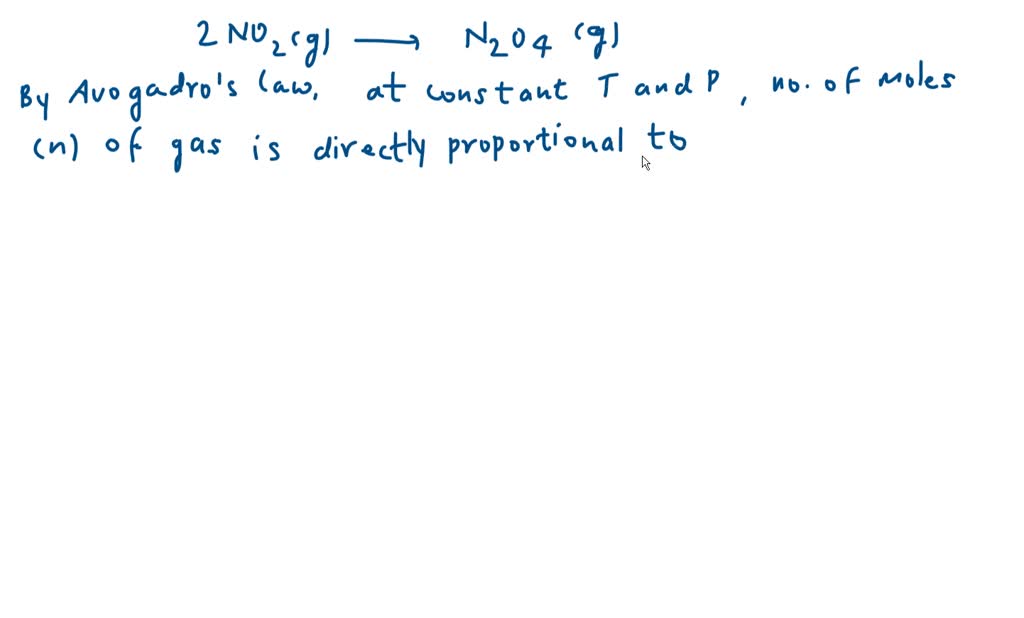 2 NO2(g) ⟶ N2O4 (g)
By Avogadro's law, at constant T and P, no. of moles
(n) of gas is directly proportional to